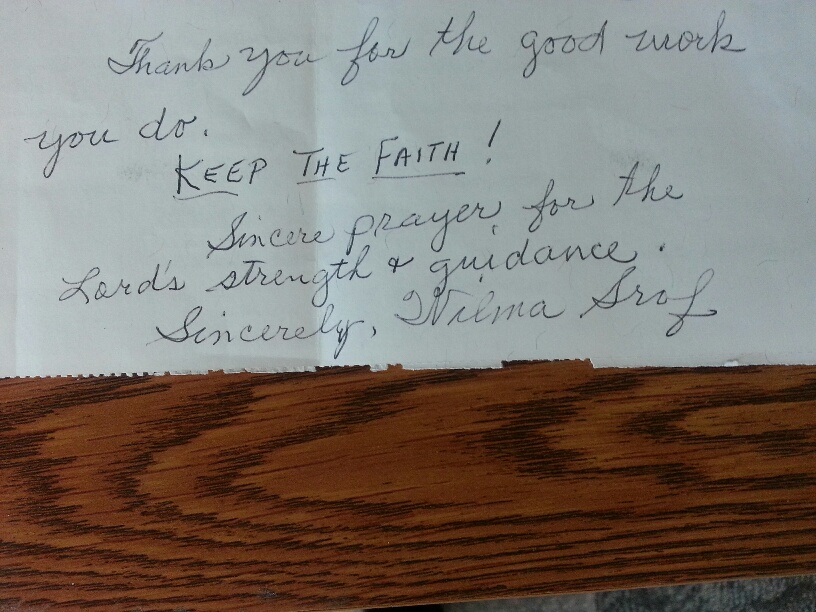 Thank you for the good work
you do.
KEEP THE FAITH!
Sincere prayer for the
Lord's strength & guidance.
Sincerely, Wilma Srof